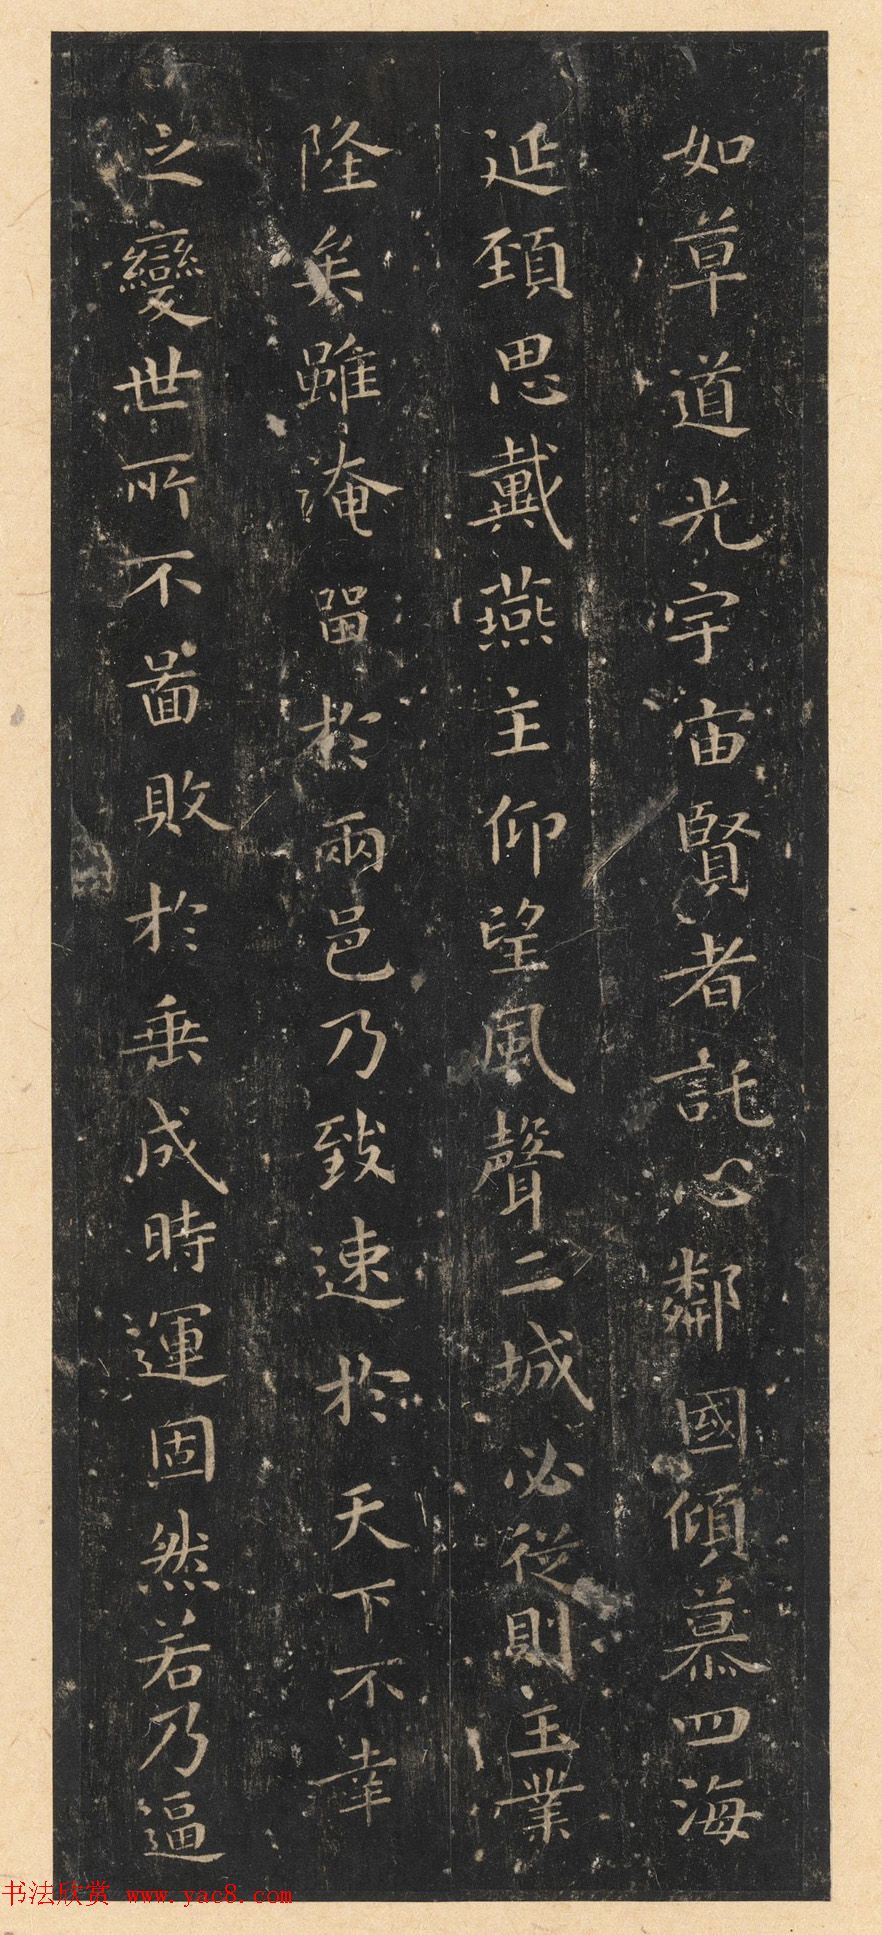 如草道光宇宙賢者託心鄰國傾慕四海
延頚思戴燕主仰望風聲二城必從則王業
隆矣雖淹留於兩邑乃致速於天下不幸
之變世所不啚敗於垂成時運固然若乃逼
书法欣赏 www.yac8.com